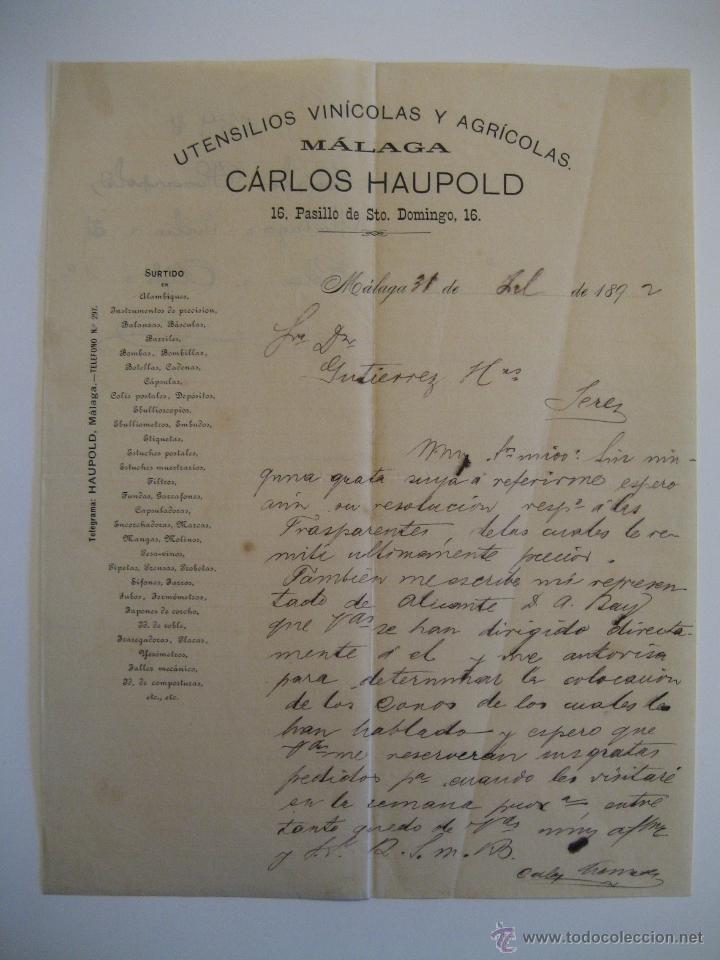 UTENSILIOS VINÍCOLAS Y AGRÍCOLAS.
MÁLAGA
CÁRLOS HAUPOLD
16, Pasillo de Sto. Domingo, 16.
Telegrama: HAUPOLD, Málaga.—TELÉFONO N.º 297.
SURTIDO
EN
Alambiques,
Instrumentos de precision,
Balanzas, Básculas,
Barriles,
Bombas, Bombillas,
Botellas, Cadenas,
Cápsulas,
Colis postales, Depósitos,
Ebullioscopios,
Ebulliometros, Embudos,
Etiquetas,
Estuches postales,
Estuches muestrarios,
Filtros,
Fundas, Garrafones,
Capsuladoras,
Encorchadoras, Marcas,
Mangas, Molinos,
Pesa-vinos,
Pipetas, Prensas, Probetas,
Sifones, Jarros,
Tubos, Termómetros,
Tapones de corcho,
Id. de roble,
Trasegadoras, Placas,
Taller mecánico,
Id. de composturas,
etc., etc.
Málaga 31 de de 1892
Gutierrez Hos
Jerez
Muy Sres mios: Sin nin-
guna grata suya á referirme espero
aún su resolución respo á las
Trasparentes, de las cuales le re-
mití ultimamente precios.
También me escribe mi represen-
tado de Alicante D. A.
que Vds se han dirigido directa-
mente á el y me autorisa
para determinar la colocación
de los Conos de los cuales le
han hablado y espero que
Vds me reserverán sus gratas
pedidos pa cuando les visitaré
en la semana proxa, entre
tanto quedo de Vds muy
y S. S. Q. S. M. B.
todocoleccion
© www.todocoleccion.net